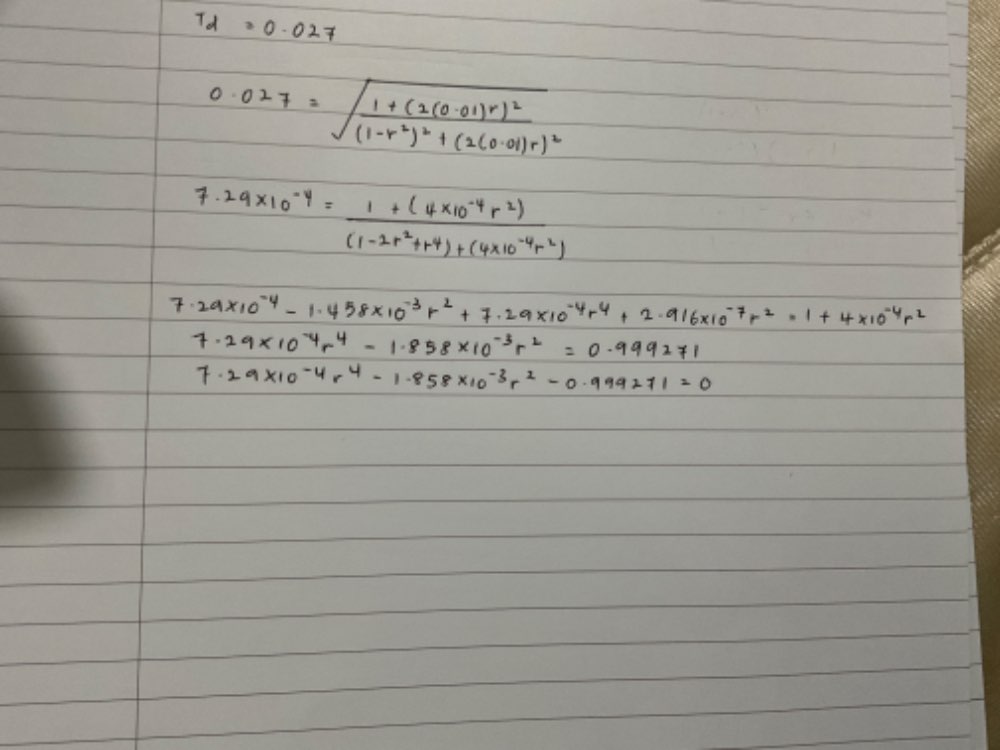 Td = 0.027
0.027 = √((1 + (2(0.01)r)²) / ((1-r²)² + (2(0.01)r)²))
7.29×10⁻⁴ = (1 + (4×10⁻⁴r²)) / ((1-2r²+r⁴)+(4×10⁻⁴r²))
7.29×10⁻⁴ - 1.458×10⁻³r² + 7.29×10⁻⁴r⁴ + 2.916×10⁻⁷r² = 1 + 4×10⁻⁴r²
7.29×10⁻⁴r⁴ - 1.858×10⁻³r² = 0.999271
7.29×10⁻⁴r⁴ - 1.858×10⁻³r² - 0.999271 = 0